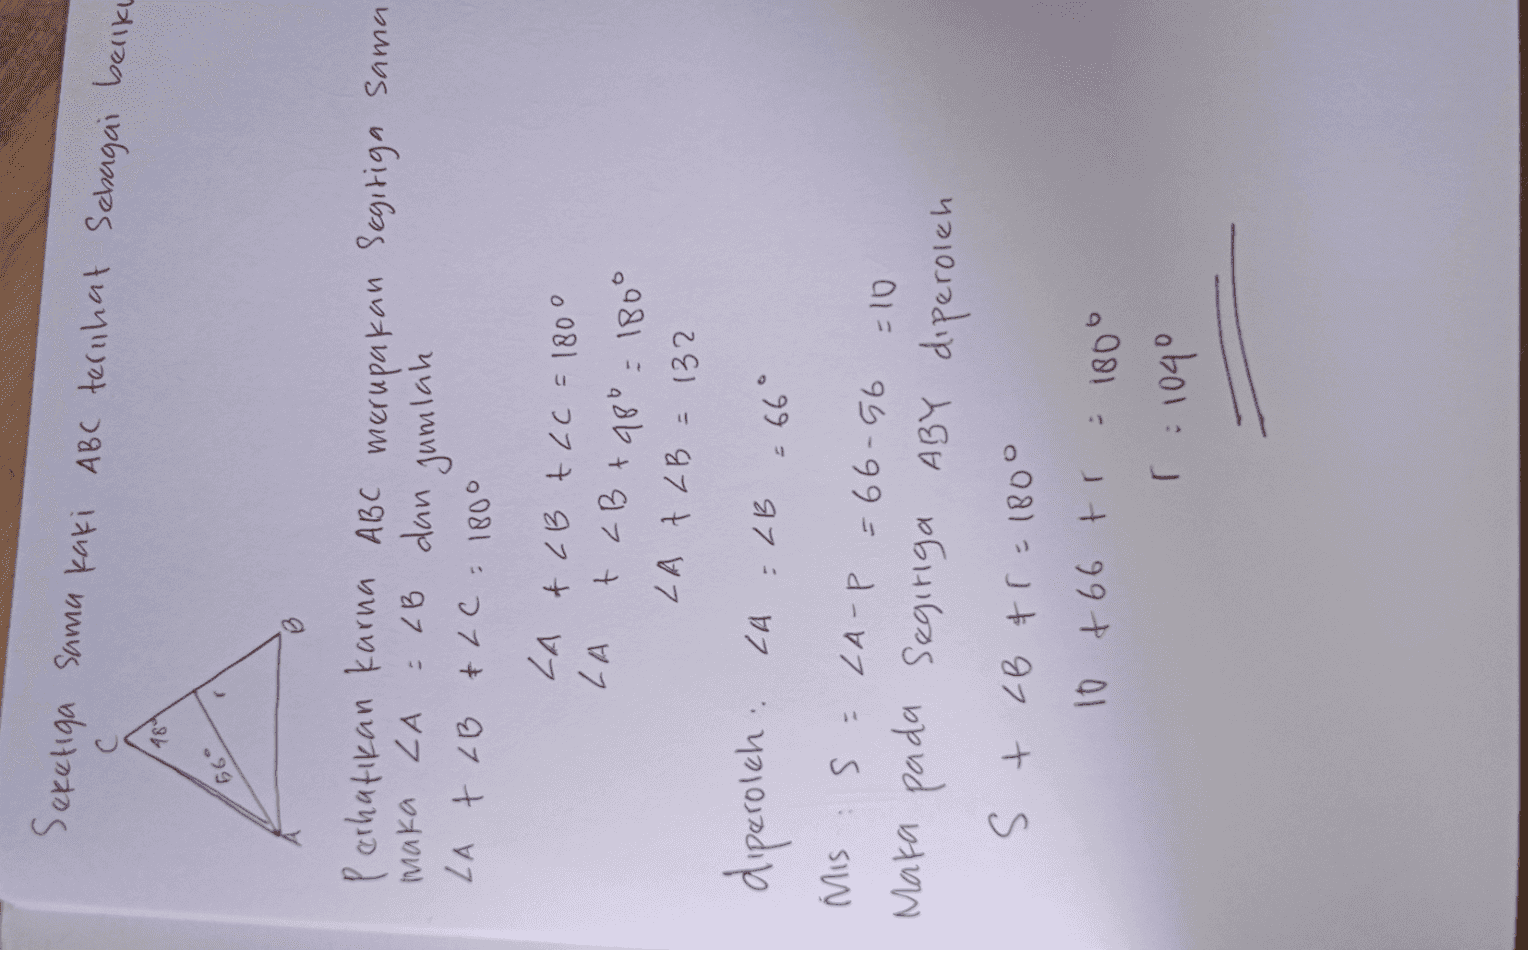 Seketiga sama kaki ABC terlihat Sebagai
C
48°
56°
r
A
B
Perhatikan karna ABC merupakan Segitiga Sama
maka ∠A = ∠B dan jumlah
∠A + ∠B + ∠C = 180°
∠A + ∠B + ∠C = 180°
∠A + ∠B + 48° = 180°
∠A + ∠B = 132
diperoleh : ∠A = ∠B = 66°
Mis : S = ∠A - P = 66 - 56 = 10
Maka pada Segitiga ABY diperoleh
S + ∠B + r = 180°
10 + 66 + r = 180°
r = 104°